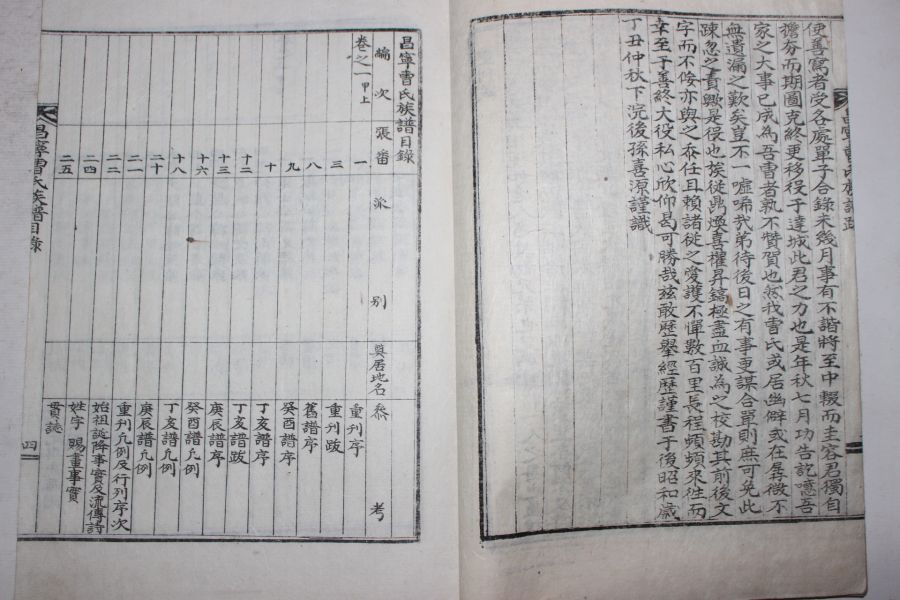 便善寫者受各處單子合錄未幾月事有不諧將至中輟而主容君獨自
擔夯而期圖克終更移役于達城此君之力也是年秋七月功告訖噫吾
家之大事已成為吾曺者孰不贊賀也然我曺氏或居幽僻或在孱微不
無遺漏之歎矣豈不一噓唏哉弟待後日之有事更謀合單則庶可免此
踈忽之責歟是役也族從昺煥喜權昇鎬極盡血誠為之校勘其前後文
字而不侫亦與之忝任且賴諸從之愛護不憚數百里長程頻頻來往而
幸至于善終大役私心欣仰曷可勝哉玆敢歷擧經歷謹書于後昭和歲
丁丑仲秋下浣後孫喜源謹識
昌寧曺氏族譜目錄
編次 張番 派別 奠居地名 叅考
卷之一 甲上 一 重刊序
三 重刊跋
八 舊譜序
九 癸酉譜序
十 丁亥譜序
十二 丁亥譜跋
十三 庚辰譜序
十六 癸酉譜凡例
十八 丁亥譜凡例
二十 庚辰譜凡例
二一 重刊凡例及行列序次
二二 始祖誕降事實及流傳詩
二四 姓字賜畫事實
二五 貫誌
昌寧曺氏族譜目錄 四